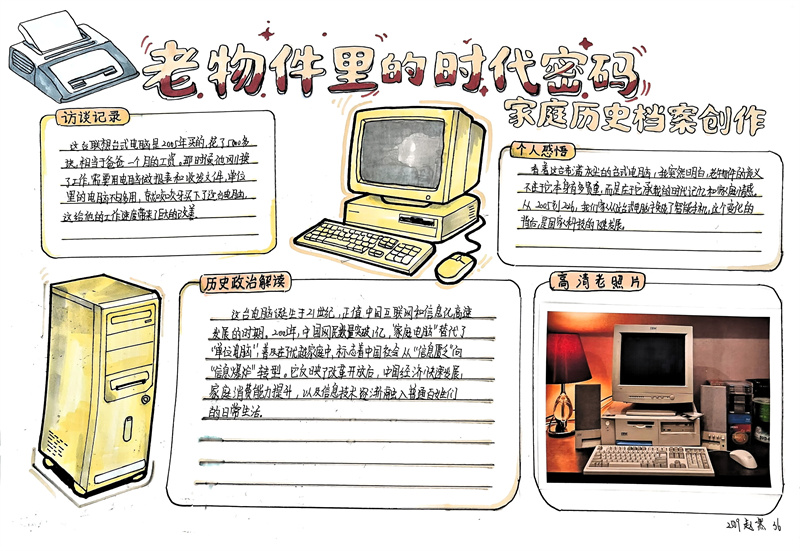 老物件里的时代密码
家庭历史档案创作
访谈记录
这台联想台式电脑是2005年买的,花了5000多
块,相当于爸爸一个月的工资。那时候他刚换
了工作,需要用电脑做报表和收发文件,单位
里的电脑不够用,
这给他的工作速度带来了巨大的改善。
个人感悟
看着这台布满灰尘的台式电脑,我突然明白,老物件的意义
不在于它本身有多贵重,而是在于它承载的时代记忆和家庭情感。
从2005到2026,我们将从台式电脑升级成了智能手机,这个变化的
背后,是国家科技的飞速发展。
历史政治解读
这台电脑诞生于21世纪,正值中国互联网和信息化高速
发展的时期。2005年,中国网民数量突破1亿,"家庭电脑"替代了
"单位电脑",普及在了优越家庭中,标志着中国社会从"信息匮乏"向
"信息爆炸"转型。它反映了改革开放后,中国经济快速发展,
家庭消费能力提升,以及信息技术逐渐融入普通百姓们
的日常生活。
高清老照片
IBM